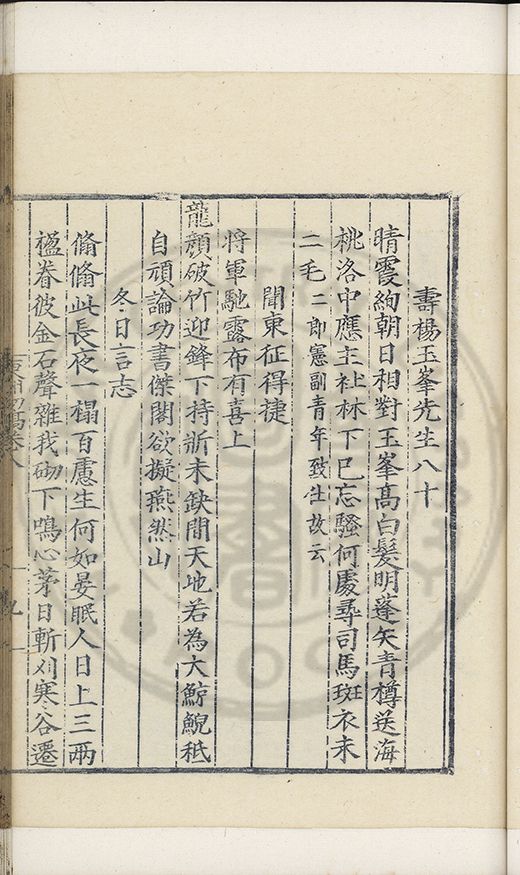 壽楊玉峯先生八十
晴霞絢朝日相對玉峯高白髮明蓬矢青樽送海
桃洛中應主社林下已忘騷何處尋司馬斑衣未
二毛二郎憲副青年致仕故云
聞東征得捷
將軍馳露布有喜上
龍顏破竹迎鋒下持斨未缺間天地若為大鯨鯢秪
自頑論功書傑閣欲擬燕然山
冬日言志
翛翛此長夜一榻百慮生何如晏眠人日上三兩
楹眷彼金石聲雜我砌下鳴心茅日斬刈寒谷遷